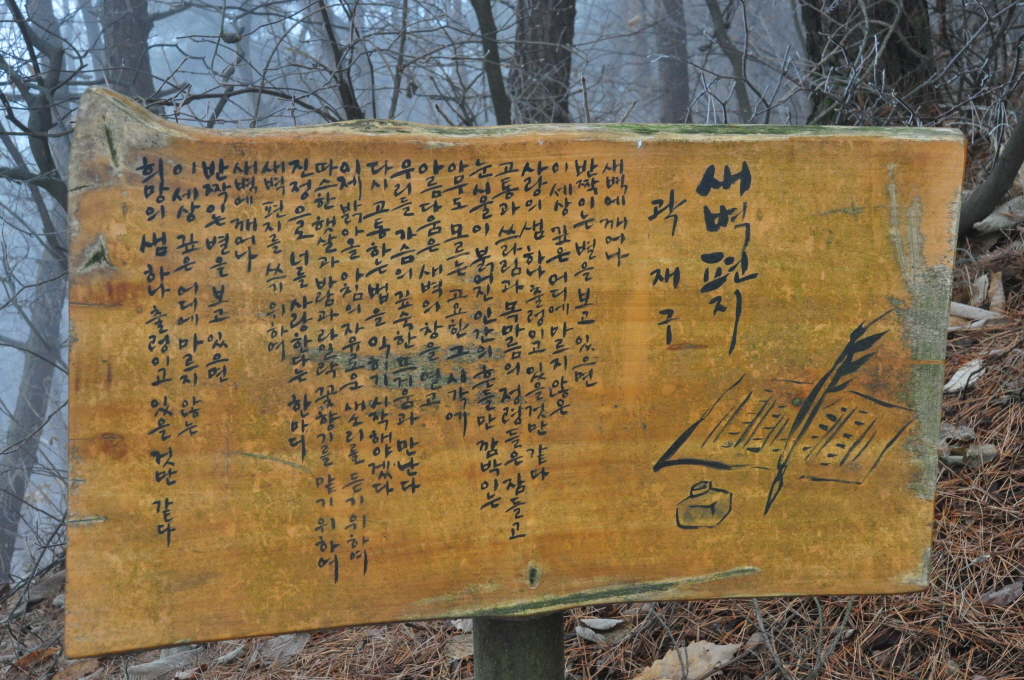 새벽 편지
곽재구
새벽에 깨어나
반짝이는 별을 보고 있으면
이 세상 깊은 어디에 마르지 않은
사랑의 샘 하나 출렁이고 있을 것만 같다
고통과 쓰라림과 목마름의 정령들은 잠들고
눈시울이 붉어진 인간의 혼들만 깜박이는
아무도 모르는 고요한 그 시각에
아름다움은 새벽의 창을 열고
우리들 가슴의 깊숙한 뜨거움과 만난다
다시 고통하는 법을 익히기 시작해야겠다
이제 밝아올 아침의 자유로운 새소리를 듣기 위하여
따스한 햇살과 바람과 라일락 꽃향기를 맡기 위하여
진정으로 너를 사랑한다는 한마디
새벽 편지를 쓰기 위하여
새벽에 깨어나
반짝이는 별을 보고 있으면
이 세상 깊은 어디에 마르지 않는
희망의 샘 하나 출렁이고 있을 것만 같다